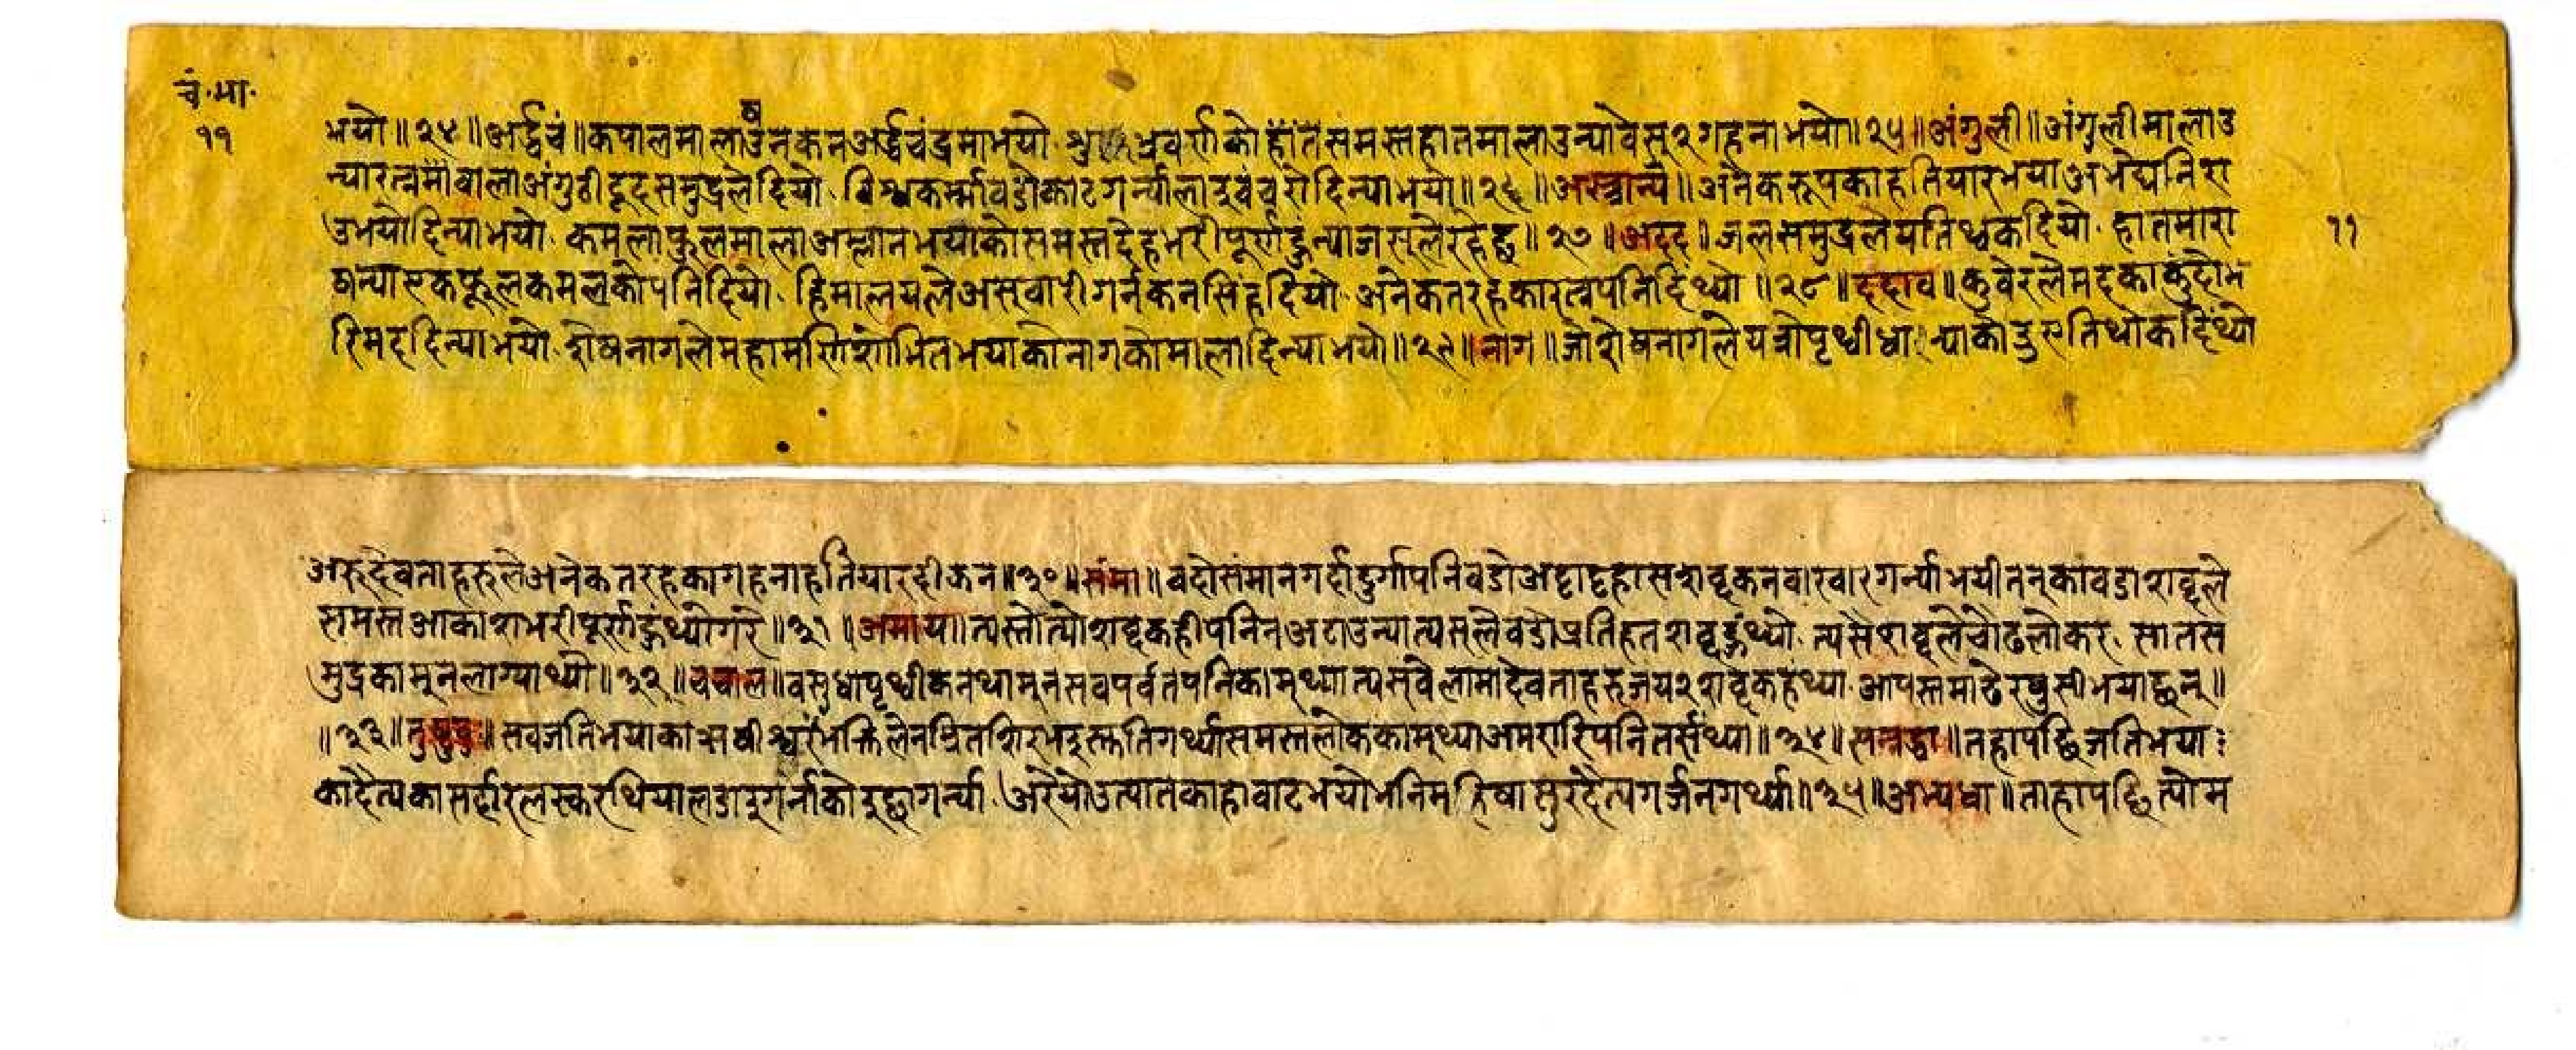 चं·भा·
११
भयो॥२४॥अर्द्धचं॥कपालमालाउनकनअर्द्धचंद्रमाभयो शुभ्रवर्णको हातसंमस्तहातमालाउन्यावेस्२गहनाभयो॥२५॥अंगुली॥अंगुलीमालाउ
न्यारत्नमावालाअंगुठीदूदसमुद्रलेदियो विश्वकर्म्मावडोकाटगर्न्यालाइवंचरोदिन्याभयो॥२६॥अस्त्रान्ये॥अनेकरूपकाहतियारभयाअभेद्यनिशा
उभयोदिन्याभयो कमलाफुलमालाअम्लानभयाकोसमस्तदेहभरीपूर्णहुन्याजस्लेरहेछ॥२७॥अदद॥जलसमुद्रलेयतिथ्वकदियो हातमारा
ष्रन्याएकफूलकमलकोपनिदियो हिमालयलेअस्वारीगर्नकनसिंहदियो अनेकतरहकारत्नपनिदिंथ्यो॥२८॥ददाव॥कुवेरलेमदकाकुंदोभ
रिमददिन्याभयो शेषनागलेमहामणिशोभितभयाकोनागकोमालादिन्याभयो॥२९॥नाग॥जोशेषनागलेयवोपृथ्वीधान्याकोछ॒तिथोकदिंथ्यो
११
अरुदेवताहरुलेअनेकतरहकागहनाहतियारदीकन॥३०॥संमा॥वदोसंमानगर्दादुर्गापनिवडोअट्टाट्टहासशब्दकनवारवारगर्न्याभयीतन्‌कावडाशब्दले
समस्तआकाशभरीपूर्णहुंथ्योगरे॥३१॥अमाय॥त्यस्तोत्योशब्दकहीपनिनअटाउन्यात्यसलेवडोप्रतिहतशब्दहुंथ्यो त्यसैशब्दलेचौढलोकर सातस
मुद्रकामुनलाग्याथ्यो॥३२॥चचाल॥वसुधापृथ्वीकनथामुनसवपर्वतपनिकामुथ्यात्यस्वेलामादेवताहरुजय२शब्दकहंथ्या आपस्तमाढेरषुसीभयाछन्॥
॥३३॥तुष्टुवु॥सवजतिभयाकाऋषीश्वरभक्तिलेनम्रितशिरभइस्तुतिगर्थ्यासमस्तलोककामुथ्याअमरारिपनितर्सथ्या॥३४॥सन्नद्धा॥तहापछिजतिभया
कादैत्यकासर्दारलस्करथियालडाइगर्नाकोइछागर्न्या अरेयोउत्पातकाहावाटभयोभनिमहिषासुरदैत्यगर्जनगर्थ्या॥३५॥अभ्यधा॥ताहापछित्योम